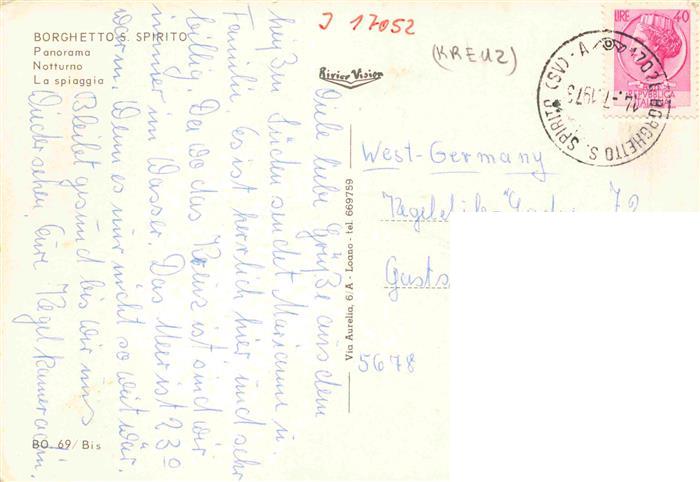 J 17052
BORGHETTO S. SPIRITO
Panorama
Notturno
La spiaggia
(KREUZ)
Rivier Vision
LIRE 40
BORGHETTO S. SPIRITO (SV) - A
14.-7.197
Viele liebe Grüße aus dem
heißen Süden sendet Marianne u.
Familie. Es ist herrlich hier und sehr
billig. Da wo das Kreuz ist sind wir
immer im Wasser. Das Meer ist 23°
warm. Wenn es nur nicht so weit wär.
Bleibt gesund bis wir uns
Wiedersehen. Eure Kegelkameradin.
West-Germany
72
Gasts
5678
Via Aurelia, 6/A - Loano - tel. 669759
BO. 69/Bis